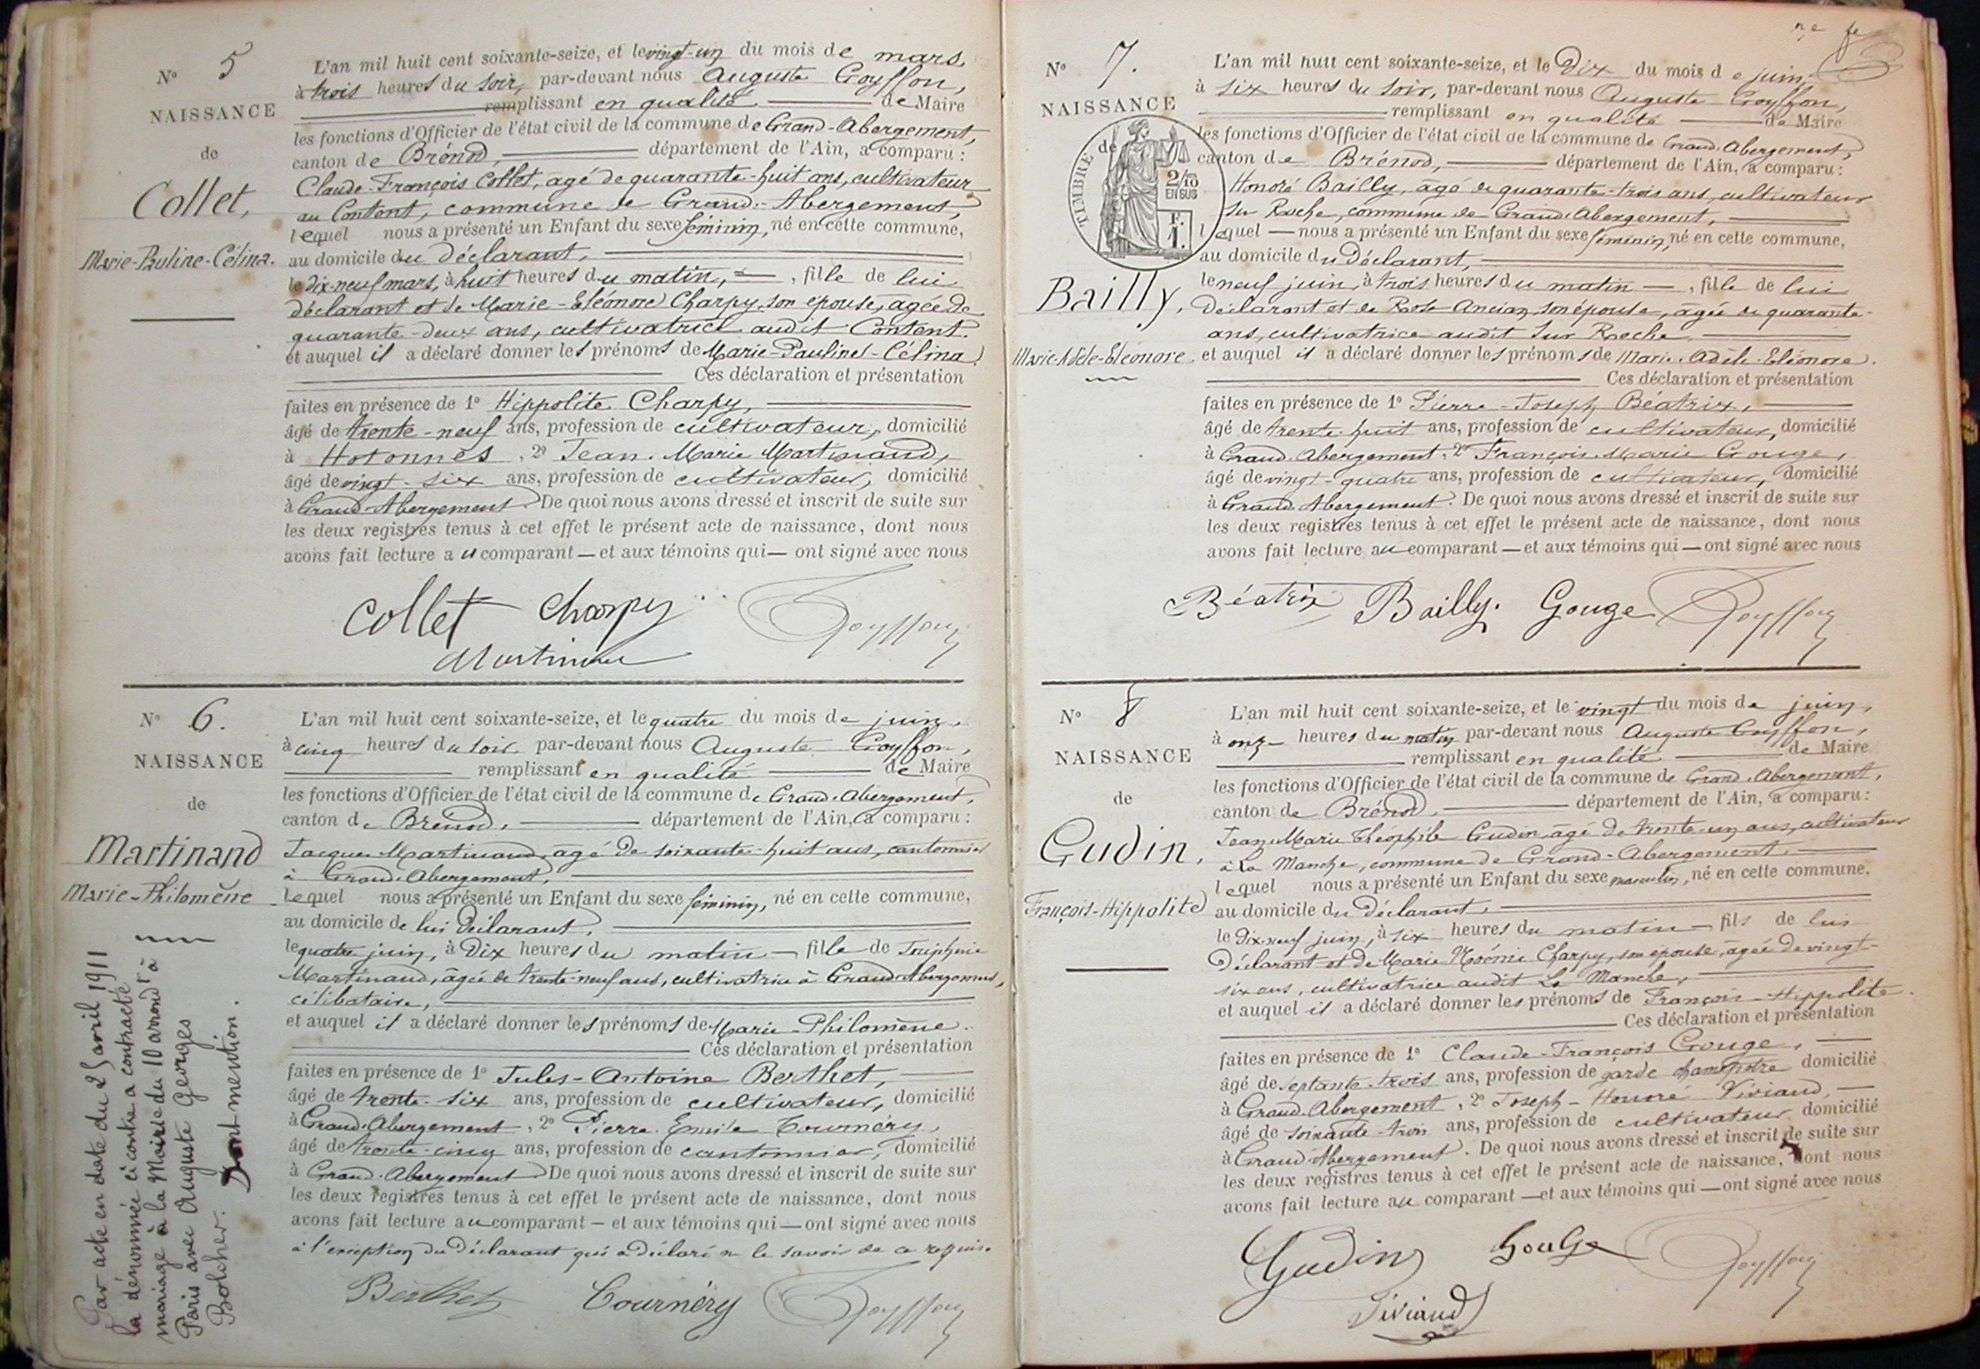 N° 5
NAISSANCE
de
Collet,
Marie-Pauline-Célina.
L'an mil huit cent soixante-seize, et le vingt-un du mois de mars,
à trois heures du soir, par-devant nous Auguste Goyffon,
remplissant en qualité de Maire
les fonctions d'Officier de l'état civil de la commune de Grand-Abergement,
canton de Brénod, département de l'Ain, a comparu :
Claude-François Collet, agé de quarante-huit ans, cultivateur
au Content, commune de Grand-Abergement,
lequel nous a présenté un Enfant du sexe féminin, né en cette commune,
au domicile du déclarant,
le dix-neuf mars, à huit heures du matin, fille de lui
déclarant et de Marie-Eléonore Charpy, son épouse, agée de
quarante-deux ans, cultivatrice audit Content.
et auquel il a déclaré donner les prénoms de Marie-Pauline-Célina
Ces déclaration et présentation
faites en présence de 1° Hippolite Charpy,
âgé de trente-neuf ans, profession de cultivateur, domicilié
à Hotonnes, 2° Jean-Marie Martinand,
âgé de vingt-six ans, profession de cultivateur, domicilié
à Grand-Abergement De quoi nous avons dressé et inscrit de suite sur
les deux registres tenus à cet effet le présent acte de naissance, dont nous
avons fait lecture au comparant — et aux témoins qui — ont signé avec nous
Collet Charpy Goyffon
Martinand
N° 6.
NAISSANCE
de
Martinand
Marie-Philomène
Par acte en date du 25 avril 1911
la dénommée ci contre a contracté
mariage à la Mairie du 10 arrondt à
Paris avec Auguste Georges
Bolcher. Dont mention.
L'an mil huit cent soixante-seize, et le quatre du mois de juin,
à cinq heures du soir par-devant nous Auguste Goyffon,
remplissant en qualité de Maire
les fonctions d'Officier de l'état civil de la commune de Grand-Abergement,
canton de Brénod, département de l'Ain, a comparu :
Jacques Martinand, agé de soixante-huit ans, cantonnier
à Grand-Abergement,
lequel nous a présenté un Enfant du sexe féminin, né en cette commune,
au domicile de lui déclarant,
le quatre juin, à dix heures du matin — fille de Joséphine
Martinand, âgée de trente-neuf ans, cultivatrice à Grand-Abergement,
célibataire,
et auquel il a déclaré donner les prénoms de Marie-Philomène.
Ces déclaration et présentation
faites en présence de 1° Jules-Antoine Berthet,
âgé de trente-six ans, profession de cultivateur, domicilié
à Grand-Abergement, 2° Pierre Emile Tournéry,
âgé de trente-cinq ans, profession de cantonnier, domicilié
à Grand-Abergement De quoi nous avons dressé et inscrit de suite sur
les deux registres tenus à cet effet le présent acte de naissance, dont nous
avons fait lecture au comparant — et aux témoins qui — ont signé avec nous
à l'exception du déclarant qui a déclaré ne le savoir de ce requis.
Berthet Tournéry Goyffon
N° 7.
NAISSANCE
de
TIMBRE
2/10
EN SUS
F.
1.
Bailly,
Marie-Adèle-Eléonore
L'an mil huit cent soixante-seize, et le Dix du mois de juin,
à six heures du soir, par-devant nous Auguste Goyffon,
remplissant en qualité de Maire
les fonctions d'Officier de l'état civil de la commune de Grand-Abergement,
canton de Brénod, département de l'Ain, a comparu :
Honoré Bailly, agé de quarante-trois ans, cultivateur
Sur Roche, commune de Grand-Abergement,
lequel — nous a présenté un Enfant du sexe féminin, né en cette commune,
au domicile du Déclarant,
le neuf juin, à trois heures du matin —, fille de lui
Déclarant et de Rose Ancian, son épouse, agée de quarante-
ans, cultivatrice audit Sur Roche
et auquel il a déclaré donner les prénoms de Marie-Adèle-Eléonore.
Ces déclaration et présentation
faites en présence de 1° Pierre-Joseph Béatrix,
âgé de trente-huit ans, profession de cultivateur, domicilié
à Grand-Abergement, 2° François Marie Gouge,
âgé de vingt-quatre ans, profession de cultivateur, domicilié
à Grand-Abergement. De quoi nous avons dressé et inscrit de suite sur
les deux registres tenus à cet effet le présent acte de naissance, dont nous
avons fait lecture au comparant — et aux témoins qui — ont signé avec nous
Béatrix Bailly. Gouge Goyffon
N° 8
NAISSANCE
de
Gudin,
François-Hippolite
L'an mil huit cent soixante-seize, et le vingt du mois de juin,
à onze heures du matin par-devant nous Auguste Goyffon,
remplissant en qualité de Maire
les fonctions d'Officier de l'état civil de la commune de Grand-Abergement,
canton de Brénod, département de l'Ain, a comparu :
Jean Marie Théophile Gudin, agé de trente-un ans, cultivateur
à La Manche, commune de Grand-Abergement,
lequel nous a présenté un Enfant du sexe masculin, né en cette commune,
au domicile du Déclarant,
le dix-neuf juin, à six heures du matin — fils de lui
Déclarant et de Marie Noémie Charpy, son épouse, agée de vingt-
six ans, cultivatrice audit La Manche,
et auquel il a déclaré donner les prénoms de François-Hippolite.
Ces déclaration et présentation
faites en présence de 1° Claude-François Gouge,
âgé de septante-trois ans, profession de garde champêtre domicilié
à Grand-Abergement, 2° Joseph-Honoré Viviand,
âgé de soixante-trois ans, profession de cultivateur, domicilié
à Grand-Abergement. De quoi nous avons dressé et inscrit de suite sur
les deux registres tenus à cet effet le présent acte de naissance, dont nous
avons fait lecture au comparant — et aux témoins qui — ont signé avec nous
Gudin Gouge Goyffon
Viviand